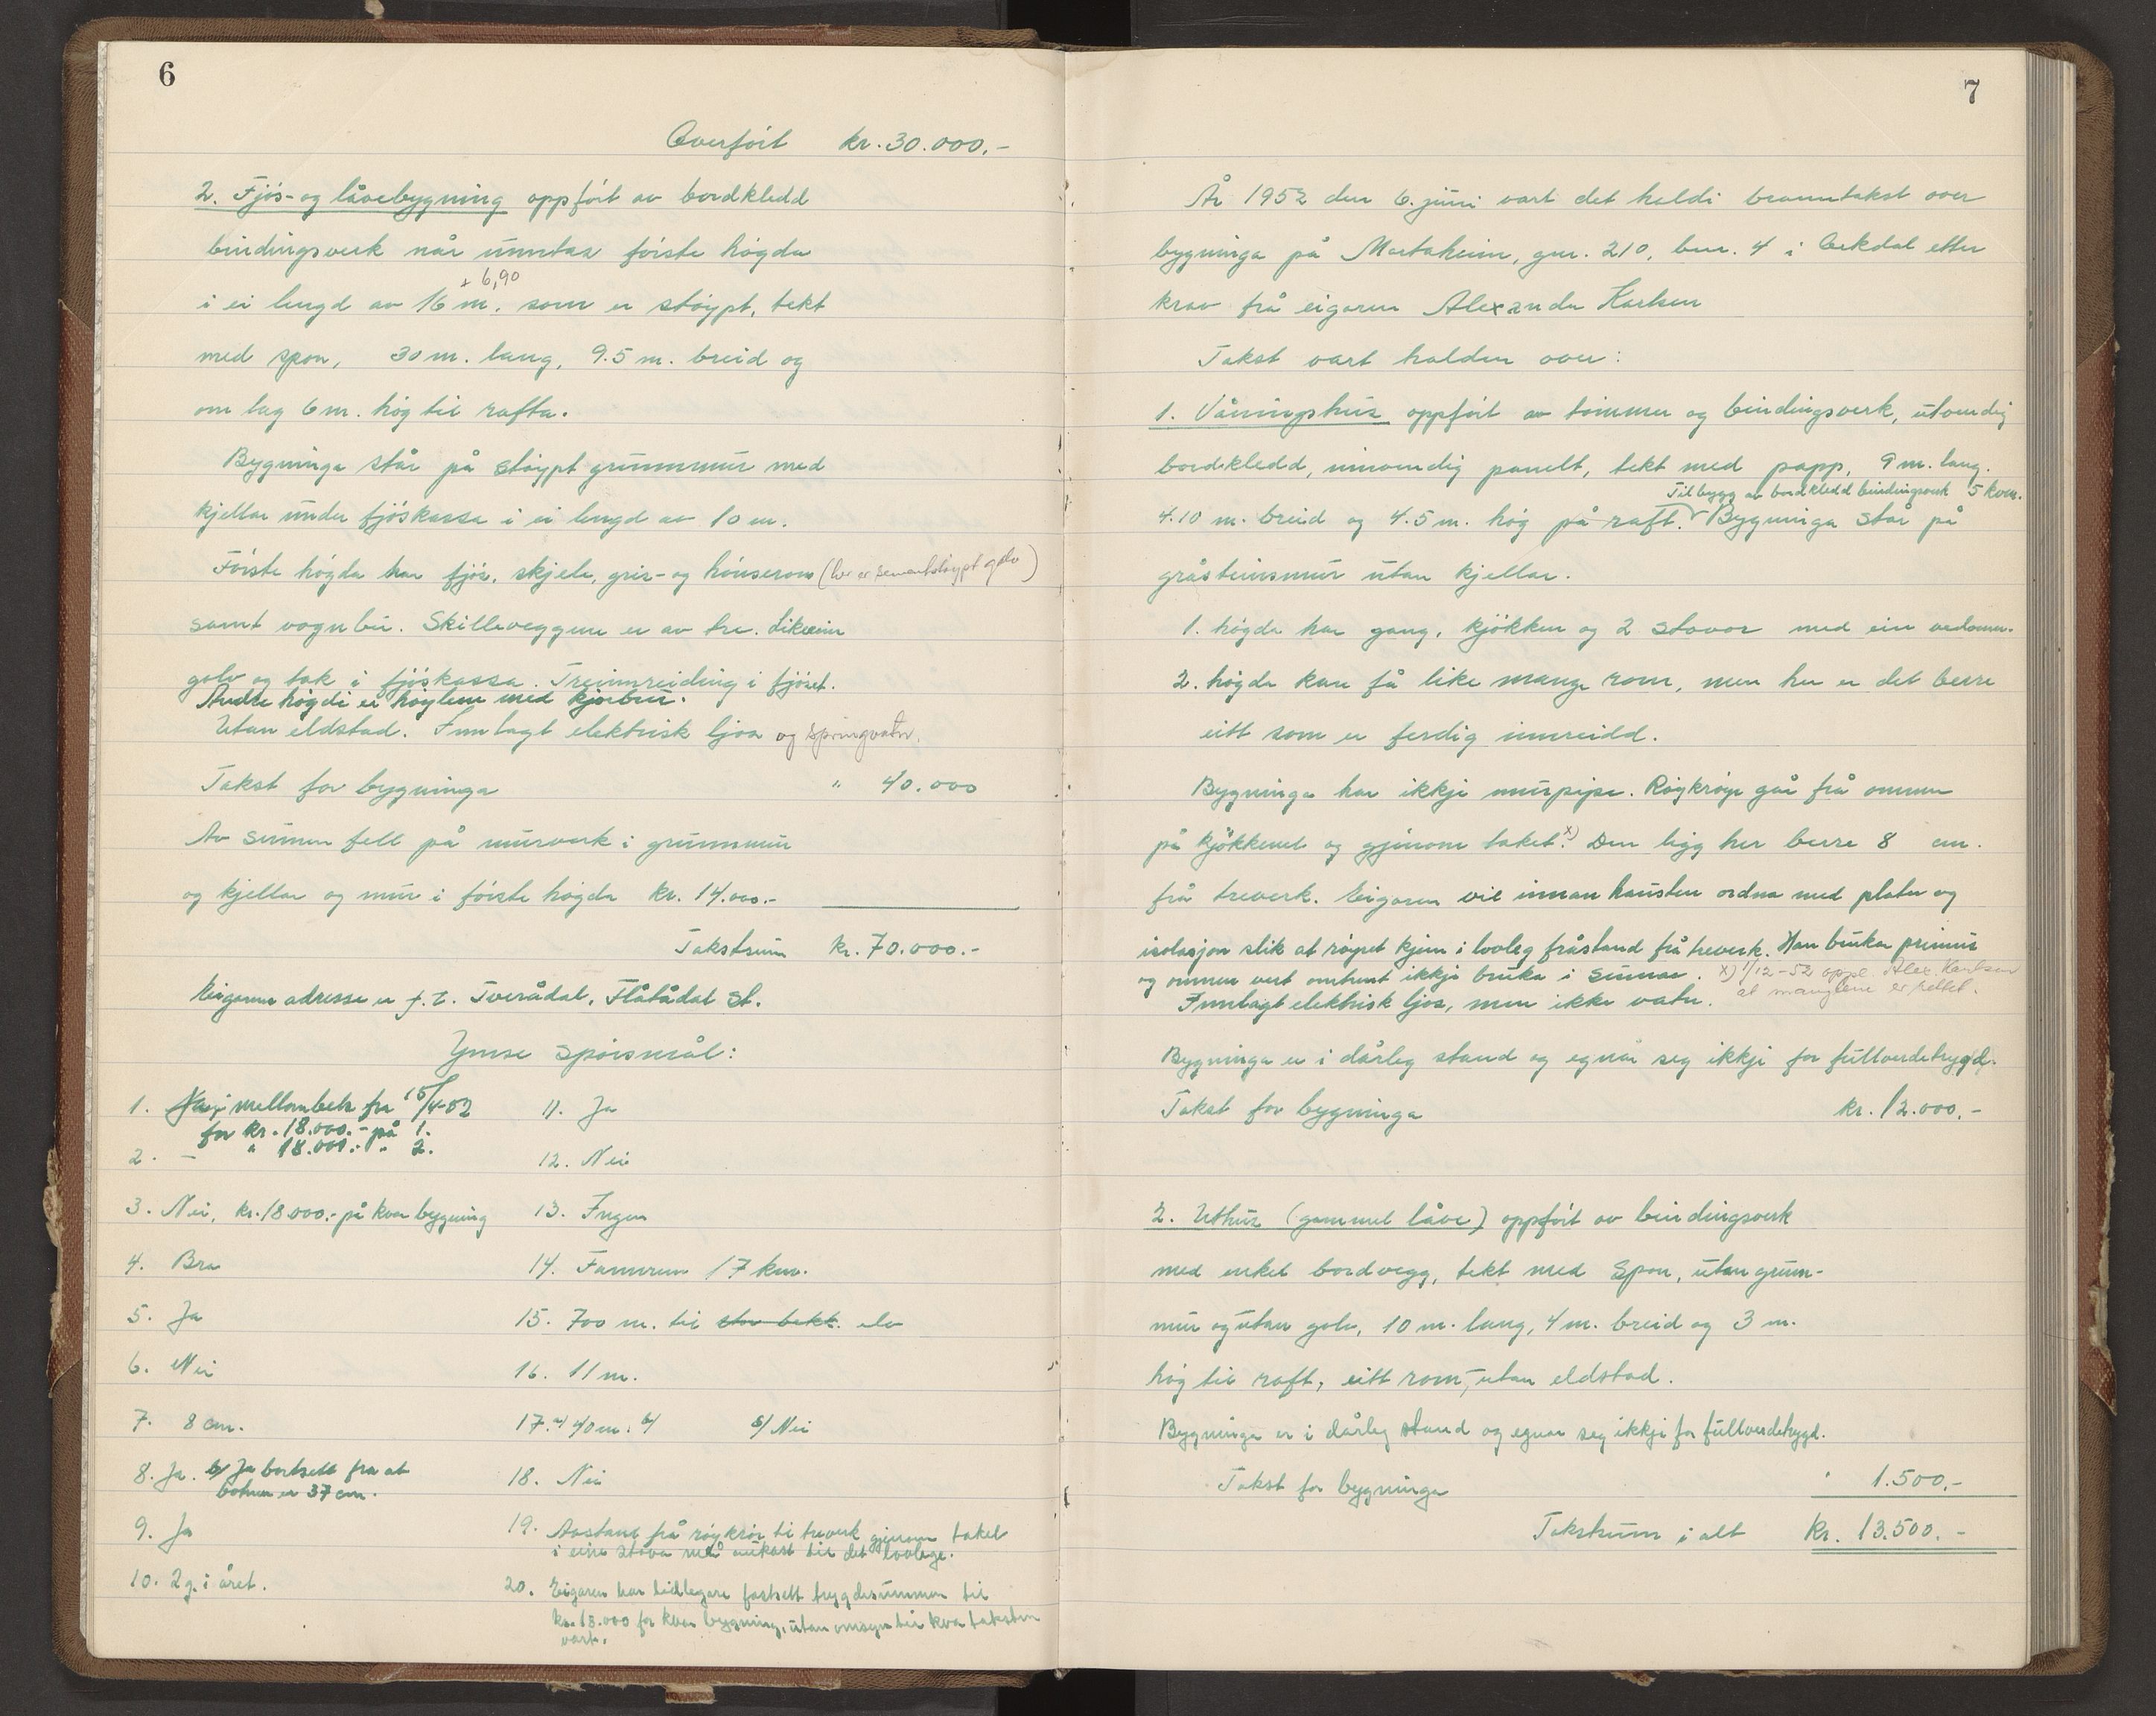 6
Overført kr. 30.000.-
2. Fjøs- og låvebygning oppført av bordkledd
bindingsverk når unntas første høgda
+ 6,90
i ei lengd av 16 m. som er støypt, tekt
med spon, 30 m. lang, 9.5 m. breid og
om lag 6 m. høg til rafta.
Bygninga står på støypt grunnmur med
kjellar under fjøskassa i ei lengd av 10 m.
Første høgda har fjøs, skjele, gris- og hønserom (her er sementstøypt golv)
samt vognbu. Skilleveggene er av tre. Likeeins
golv og tak i fjøskassa. Treinnreiding i fjøset.
Andre høgdi er høylem med kjørbru.
Utan eldstad. Innlagt elektrisk ljos og springvatn.
Takst for bygninga " 40.000
Av sumen fell på murverk i grunnmur
og kjellar og mur i første høgda kr. 14.000.-
Takstsum kr. 70.000.-
Eigarens adresse er p.t. Tverådal, Flåtådal st.
Ymse spørsmål:
1. Nei, mellombels fra 15/4-52
for kr. 18.000.- på 1.
2. - " 18.000.- " 2.
3. Nei, kr. 18.000.- på kvar bygning
4. Bra
5. Ja
6. Nei
7. 8 cm.
8. Ja. b/ Ja bortsett fra at
botnen er 37 cm.
9. Ja
10. 2 g. i året.
11. Ja
12. Nei
13. Ingen
14. Fannrem 17 km.
15. 700 m. til stor bekk. elv
16. 11 m.
17. a/ 40 m. b/ b/ Nei
18. Nei
19. Avstand frå røykrør til treverk gjenom taket
i eine stova må aukast til det lovlege.
20. Eigaren har tidlegare fastsett trygdesummen til
kr. 18.000 for kvar bygning, utan omsyn til kva taksten
vart.
7
År 1952 den 6. juni vart det haldi branntakst over
bygninga på Martaheim, gnr. 210, bnr. 4 i Orkdal etter
krav frå eigaren Alexander Karlsen
Takst vart halden over:
1. Våningshus oppført av tømmer og bindingsverk, utvendig
bordkledd, innvendig panelt, tekt med papp, 9 m. lang.
Tilbygg av bordkledd bindingsverk 5 kvm.
4.10 m. breid og 4.5 m. høg på raft. Bygninga står på
gråsteinsmur utan kjellar.
1. høgda har gang, kjøkken og 2 stovor med ein vedomn.
2. høgda kan få like mange rom, men her er det berre
eitt som er ferdig innreidd.
Bygninga har ikkje murpipe. Røykrøyr går frå omnen
på kjøkkenet og gjenom taket. x) Den ligg her berre 8 cm.
frå treverk. Eigaren vil innan hausten ordna med plater og
isolasjon slik at røyret kjem i lovleg fråstand frå treverk. Han brukar primus
og omnen vert omtrent ikkje bruka i sumar. x) 1/12-52 oppl. Alex. Karlsen
at manglene er rettet.
Innlagt elektrisk ljos, men ikke vatn.
Bygninga er i dårleg stand og egnar seg ikkje for fullverdetrygd.
Takst for bygninga kr. 12.000.-
2. Uthus (gammel låve) oppført av bindingsverk
med enkel bordvegg, tekt med spon, utan grunn-
mur og utan golv, 10 m. lang, 4 m. breid og 3 m.
høg til raft, eitt rom, utan eldstad.
Bygninga er i dårleg stand og egnar seg ikkje for fullverdetrygd.
Takst for bygninga " 1.500.-
Takstsum i alt kr. 13.500.-